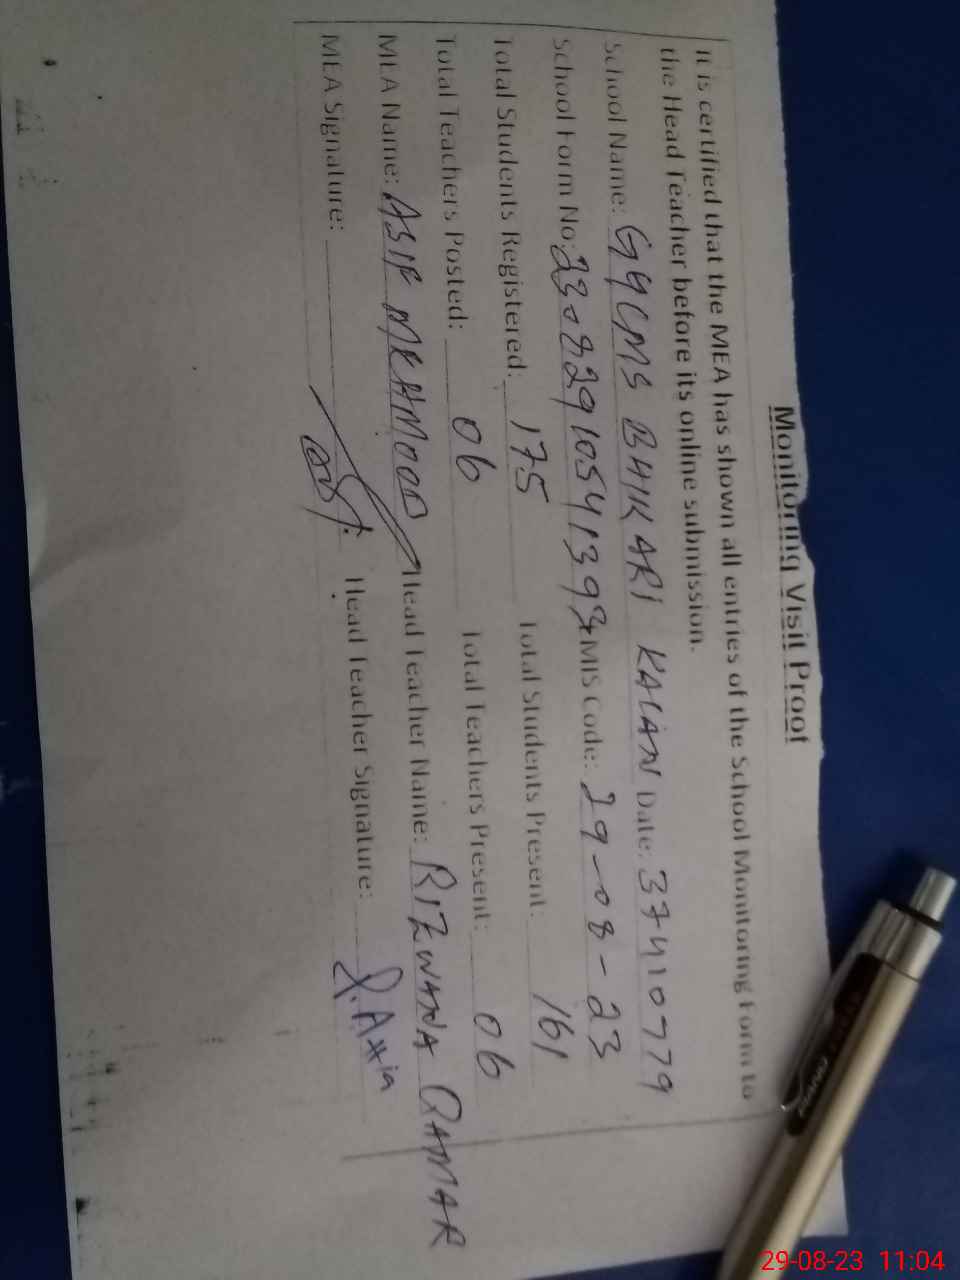 Monitoring Visit Proof
It is certified that the MEA has shown all entries of the School Monitoring Form to
the Head Teacher before its online submission.
School Name: GGCMS BHIKARI KALAN Date: 37410779
School Form No: MIS Code: 29-08-23
Total Students Registered: 175 Total Students Present: 161
Total Teachers Posted: 06 Total Teachers Present: 06
MEA Name: ASIF MEHMOOD Head Teacher Name: RIZWANA QAMAR
MEA Signature: Head Teacher Signature:
29-08-23 11:04